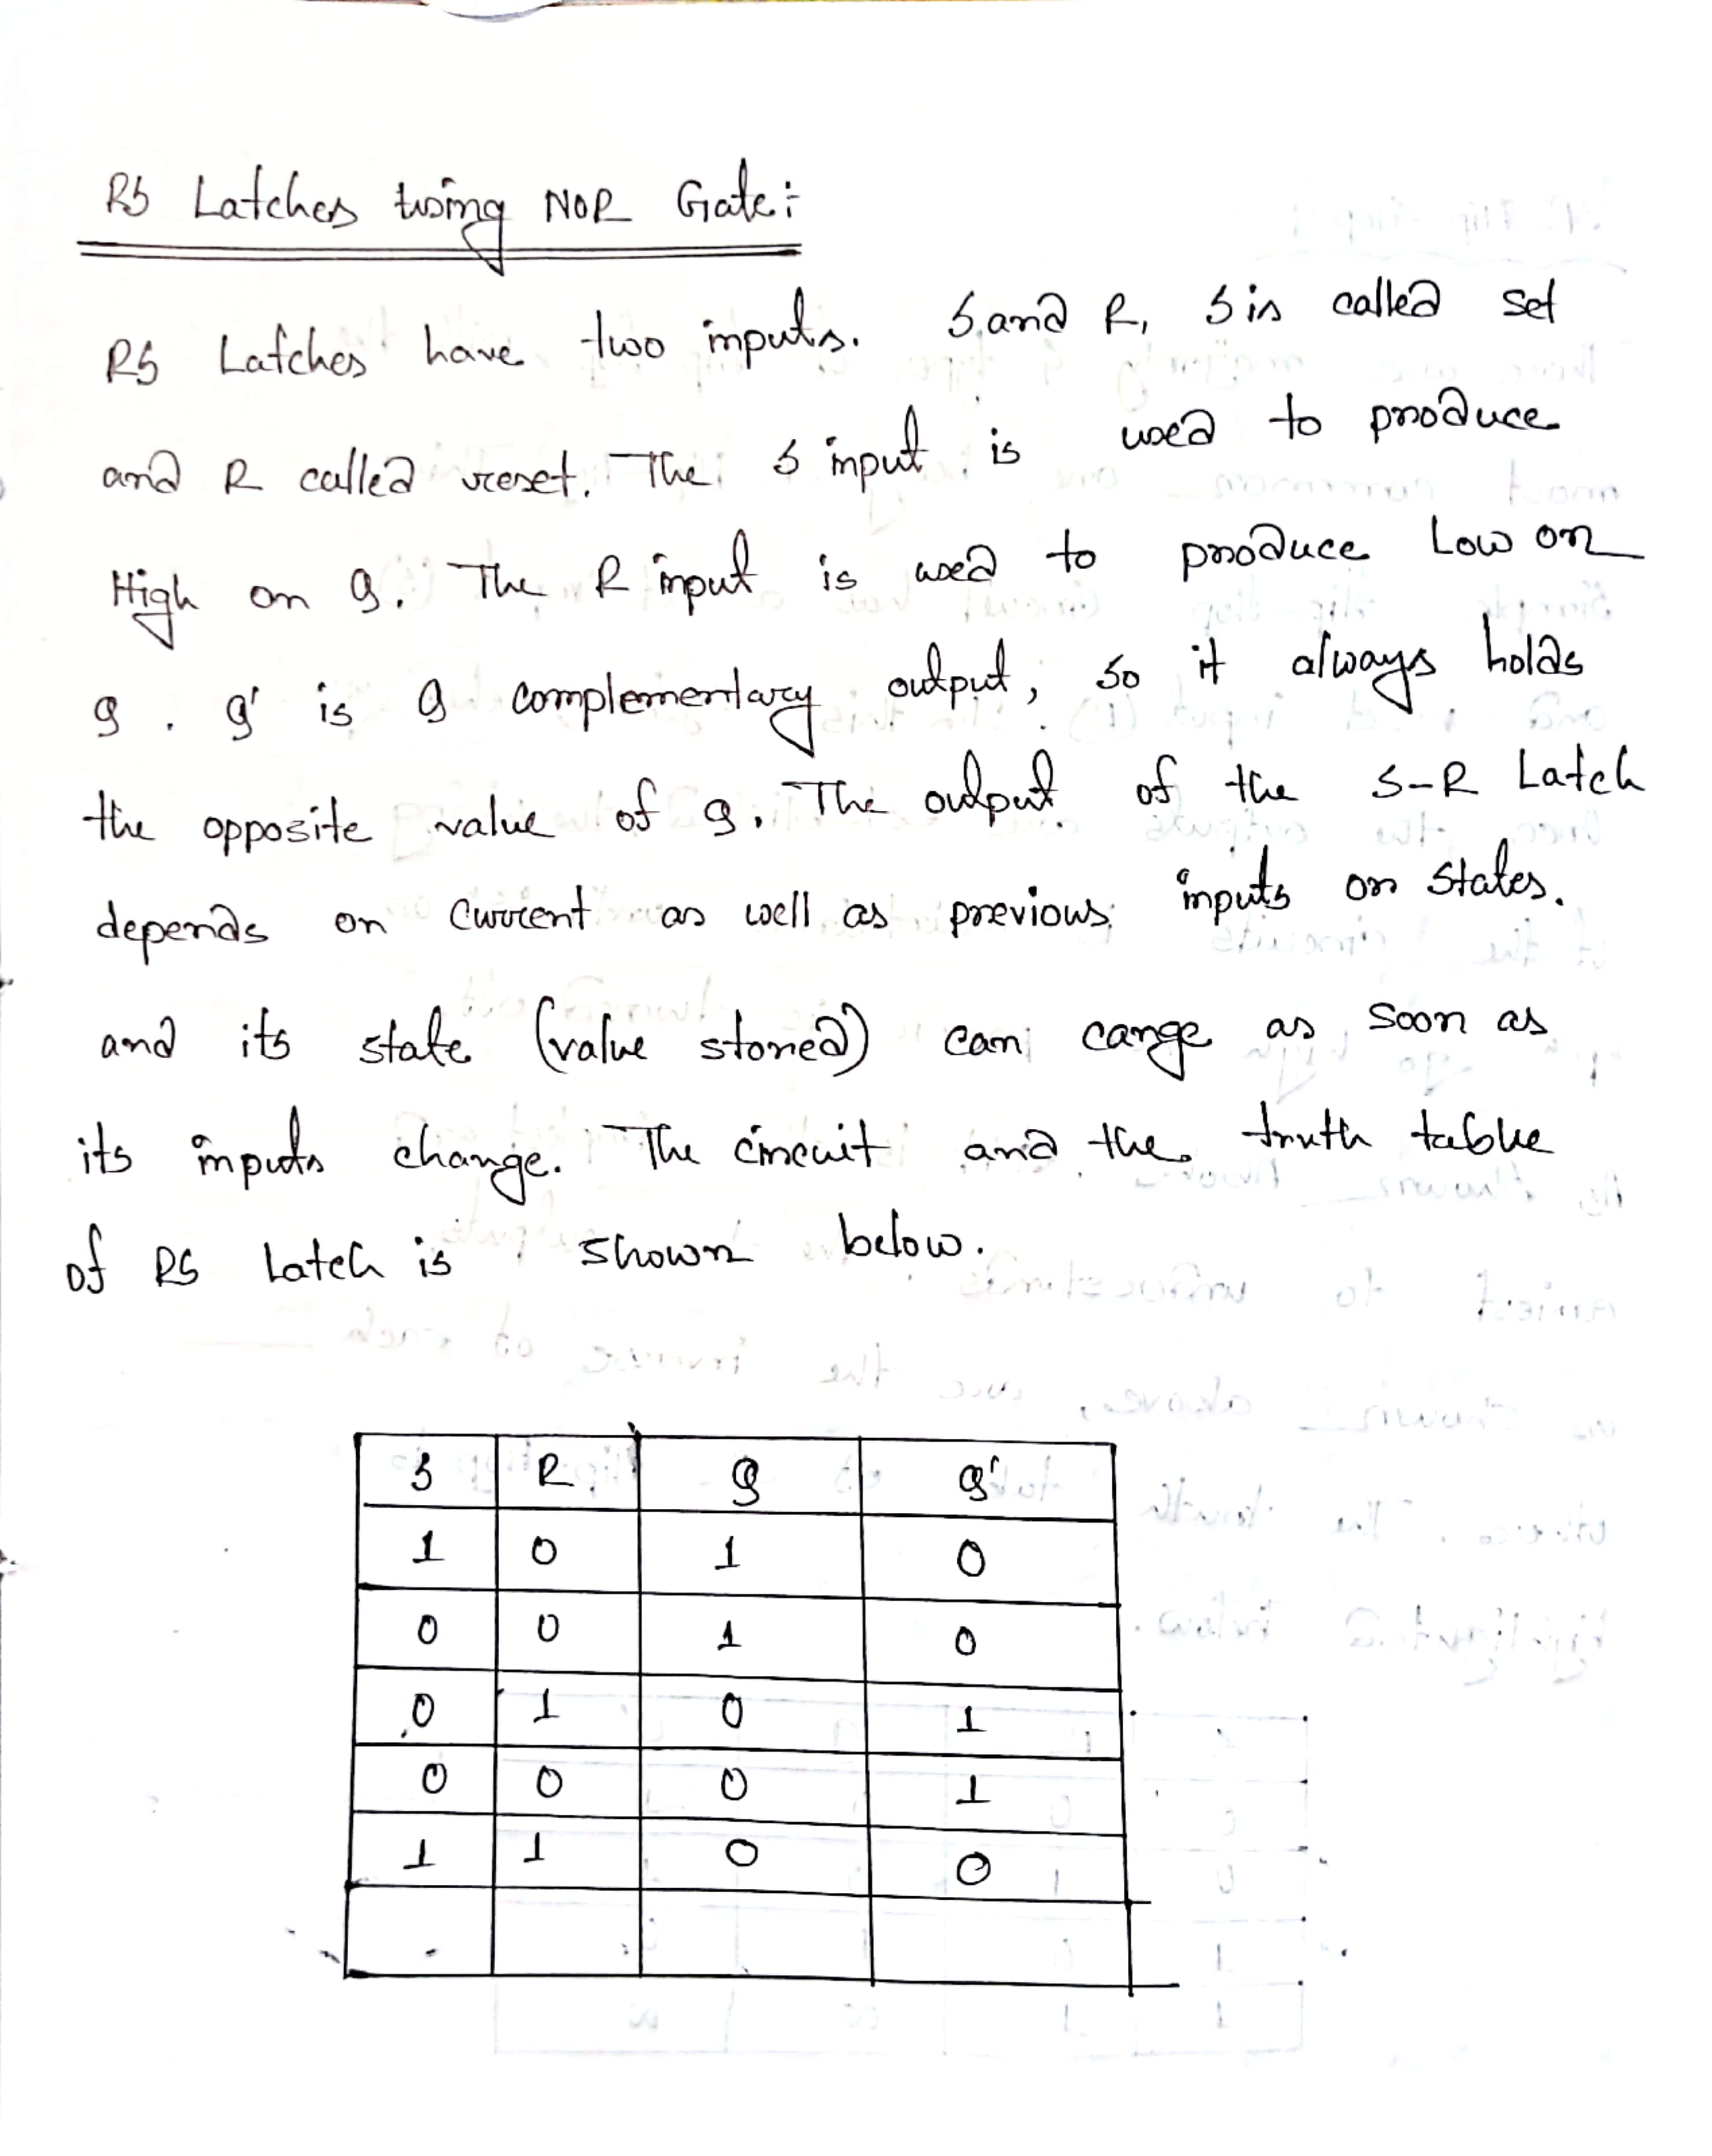 RS Latches using NOR Gate:-
RS Latches have two inputs. S and R, S is called set
and R called reset. The S input is used to produce
High on Q. The R input is used to produce Low on
Q. Q' is Q complementary output, so it always holds
the opposite value of Q. The output of the S-R Latch
depends on current as well as previous inputs or states.
and its state (value stored) can cange as soon as
its inputs change. The circuit and the truth table
of RS Latch is shown below.
S R Q Q'
1 0 1 0
0 0 1 0
0 1 0 1
0 0 0 1
1 1 0 0